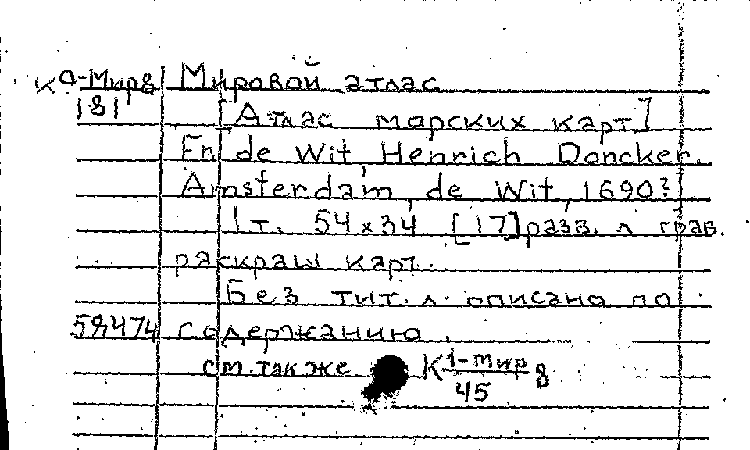 К 0-Мир8 Мировой атлас
181 [Атлас морских карт]
Fr. de Wit, Henrich Doncker.
Amsterdam, de Wit, 1690?
1 т. 54x34 [17] разв. л грав.
раскраш карт.
Без тит. л. описано по
содержанию.
см. также К 1-мир 8
45